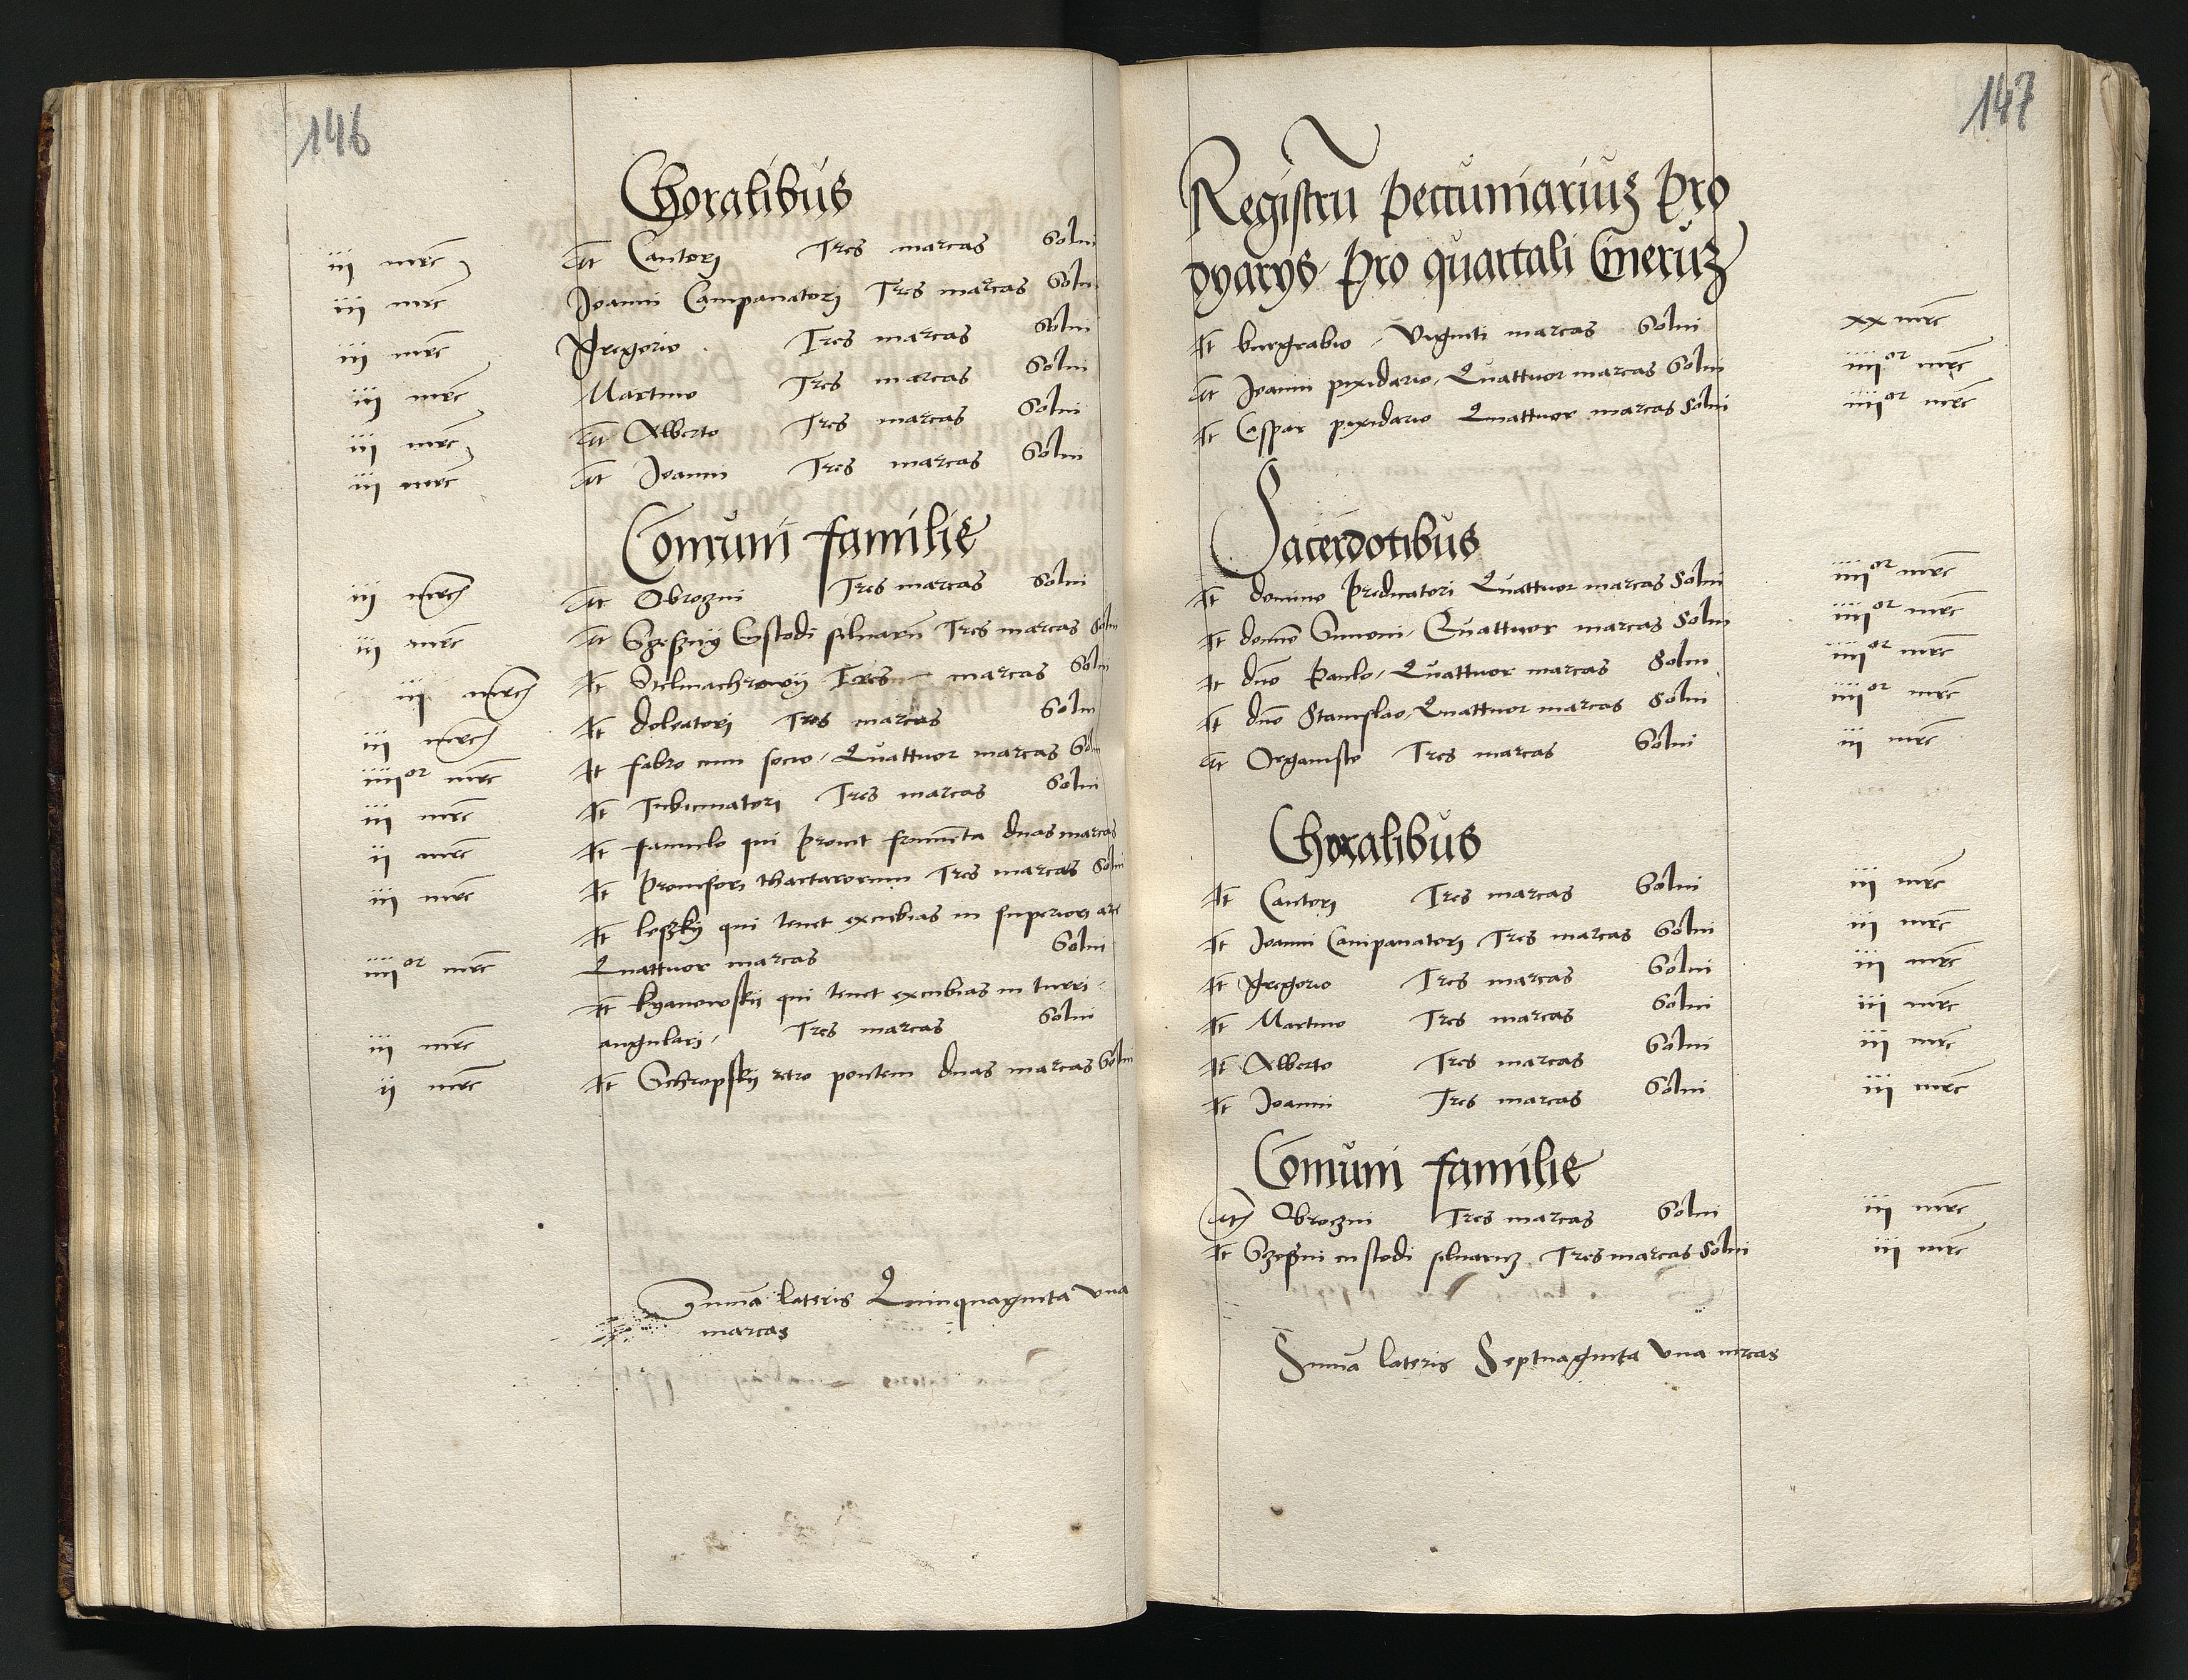 146
Choralibus
iii mrc It Cantorj Tres marcas Solui
iii mrc Joanni Campanatorj Tres marcas Solui
iii mrc Gregorio Tres marcas Solui
iii mrc Martino Tres marcas Solui
iii mrc It Alberto Tres marcas Solui
iii mrc It Joanni Tres marcas Solui
Comuni familie
iii mrc It Obrozni Tres marcas Solui
iii mrc It Szesnij Custodi siluarū Tres marcas Solui
iii mrc It Stelmachrowij Tres marcas Solui
iii mrc It doleatorj Tres marcas Solui
iiiior mrc It fabro cum socio, Quattuor marcas Solui
iii mrc It Tubicinatorj Tres marcas Solui
ii mrc It famulo qui prouit frumēta duas marcas
iii mrc It prouisorj thartarorum Tres marcas Solui
It leszkij qui tenet excubias in superiorj arce
iiiior mrc Quattuor marcas Solui
It kyanowskij qui tenet excubias in turri
iii mrc angularj, Tres marcas Solui
ii mrc It Schropskij retro pontem duas marcas Solui
Summa lateris Quinquaginta vna
marcas
147
Registrū peccuniariuz pro
dyarys pro quartali Cineruz
It burgrabio, Viginti marcas Solui xx mrc
It Joanni pixidario, Quattuor marcas Solui iiiior mrc
It Caspar pixidario Quattuor marcas Solui iiiior mrc
Sacerdotibus
It domino predicatori Quattuor marcas Solui iiiior mrc
It domno Simoni, Quattuor marcas Solui iiiior mrc
It dno Paulo, Quattuor marcas Solui iiiior mrc
It dno Stanislao, Quattuor marcas Solui iiiior mrc
It Organiste Tres marcas Solui iii mrc
Choralibus
It Cantorj Tres marcas Solui iii mrc
It Joanni Campanatorj Tres marcas Solui iii mrc
It Gregorio Tres marcas Solui iii mrc
It Martino Tres marcas Solui iii mrc
It Alberto Tres marcas Solui iii mrc
It Joanni Tres marcas Solui iii mrc
Comuni familie
It Obrozni Tres marcas Solui iii mrc
It Szesni custodi siluaruz Tres marcas Solui iii mrc
Summa lateris Septuaginta vna mrcas